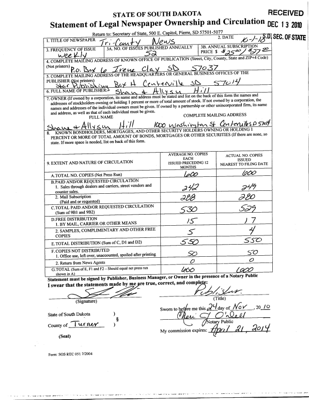 STATE OF SOUTH DAKOTA
RECEIVED
Statement of Legal Newspaper Ownership and Circulation
DEC 13 2010
Return to: Secretary of State, 500 E. Capitol, Pierre, SD 57501-5077
S.D. SEC. OF STATE
1. TITLE OF NEWSPAPER Tri-County News
2. DATE
3. FREQUENCY OF ISSUE weekly
3A. NO. OF ISSUES PUBLISHED ANNUALLY 52
3B. ANNUAL SUBSCRIPTION PRICE
4. COMPLETE MAILING ADDRESS OF KNOWN OFFICE OF PUBLICATION (Street, City, County, State and ZIP+4 Code) (Not printers)
P.O. Box Irene Clay SD 57037
5. COMPLETE MAILING ADDRESS OF THE HEADQUARTERS OR GENERAL BUSINESS OFFICES OF THE PUBLISHER (Not printers)
Star Publishing Box H Centerville SD 57014
6. FULL NAME OF PUBLISHER: Shane & Allyson Hill
7. OWNER (If owned by a corporation, its name and address must be stated and list on the back of this form the names and
addresses of stockholders owning or holding 1 percent or more of total amount of stock. If not owned by a corporation, the
names and addresses of the individual owners must be given. If owned by a partnership or other unincorporated firm, its name
and address, as well as that of each individual must be given.)
FULL NAME
COMPLETE MAILING ADDRESS
Shane & Allyson Hill
8. KNOWN BONDHOLDERS, MORTGAGES, AND OTHER SECURITY HOLDERS OWNING OR HOLDING 1
PERCENT OR MORE OF TOTAL AMOUNT OF BONDS, MORTGAGES OR OTHER SECURITIES (If there are none, so
state. If more space is needed, list on back of this form.
9. EXTENT AND NATURE OF CIRCULATION
AVERAGE NO. COPIES EACH ISSUED PRECEDING 12 MONTHS
ACTUAL NO. COPIES ISSUED NEAREST TO FILING DATE
A. TOTAL NO. COPIES (Net Press Run) 600 600
B. PAID AND/OR REQUESTED CIRCULATION
1. Sales through dealers and carriers, street vendors and counter sales. 242 249
2. Mail Subscription (Paid and or requested) 288 280
C. TOTAL PAID AND/OR REQUESTED CIRCULATION (Sum of 9B1 and 9B2) 530 529
D. FREE DISTRIBUTION
1. BY MAIL, CARRIER OR OTHER MEANS 15 17
2. SAMPLES, COMPLIMENTARY AND OTHER FREE COPIES 5 4
E. TOTAL DISTRIBUTION (Sum of C, D1 and D2) 550 550
F. COPIES NOT DISTRIBUTED
1. Office use, left over, unaccounted, spoiled after printing 50 50
2. Return from News Agents 0 0
G. TOTAL (Sum of E, F1 and F2 - Should equal net press run shown in A) 600 600
Statement must be signed by Publisher, Business Manager, or Owner in the presence of a Notary Public
I swear that the statements made by me are true, correct, and complete:
(Signature)
Publisher
(Title)
State of South Dakota )
Sworn to before me this 24 day of Nov 20 10
County of Turner )
Notary Public
(Seal)
My commission expires: April 21, 2014